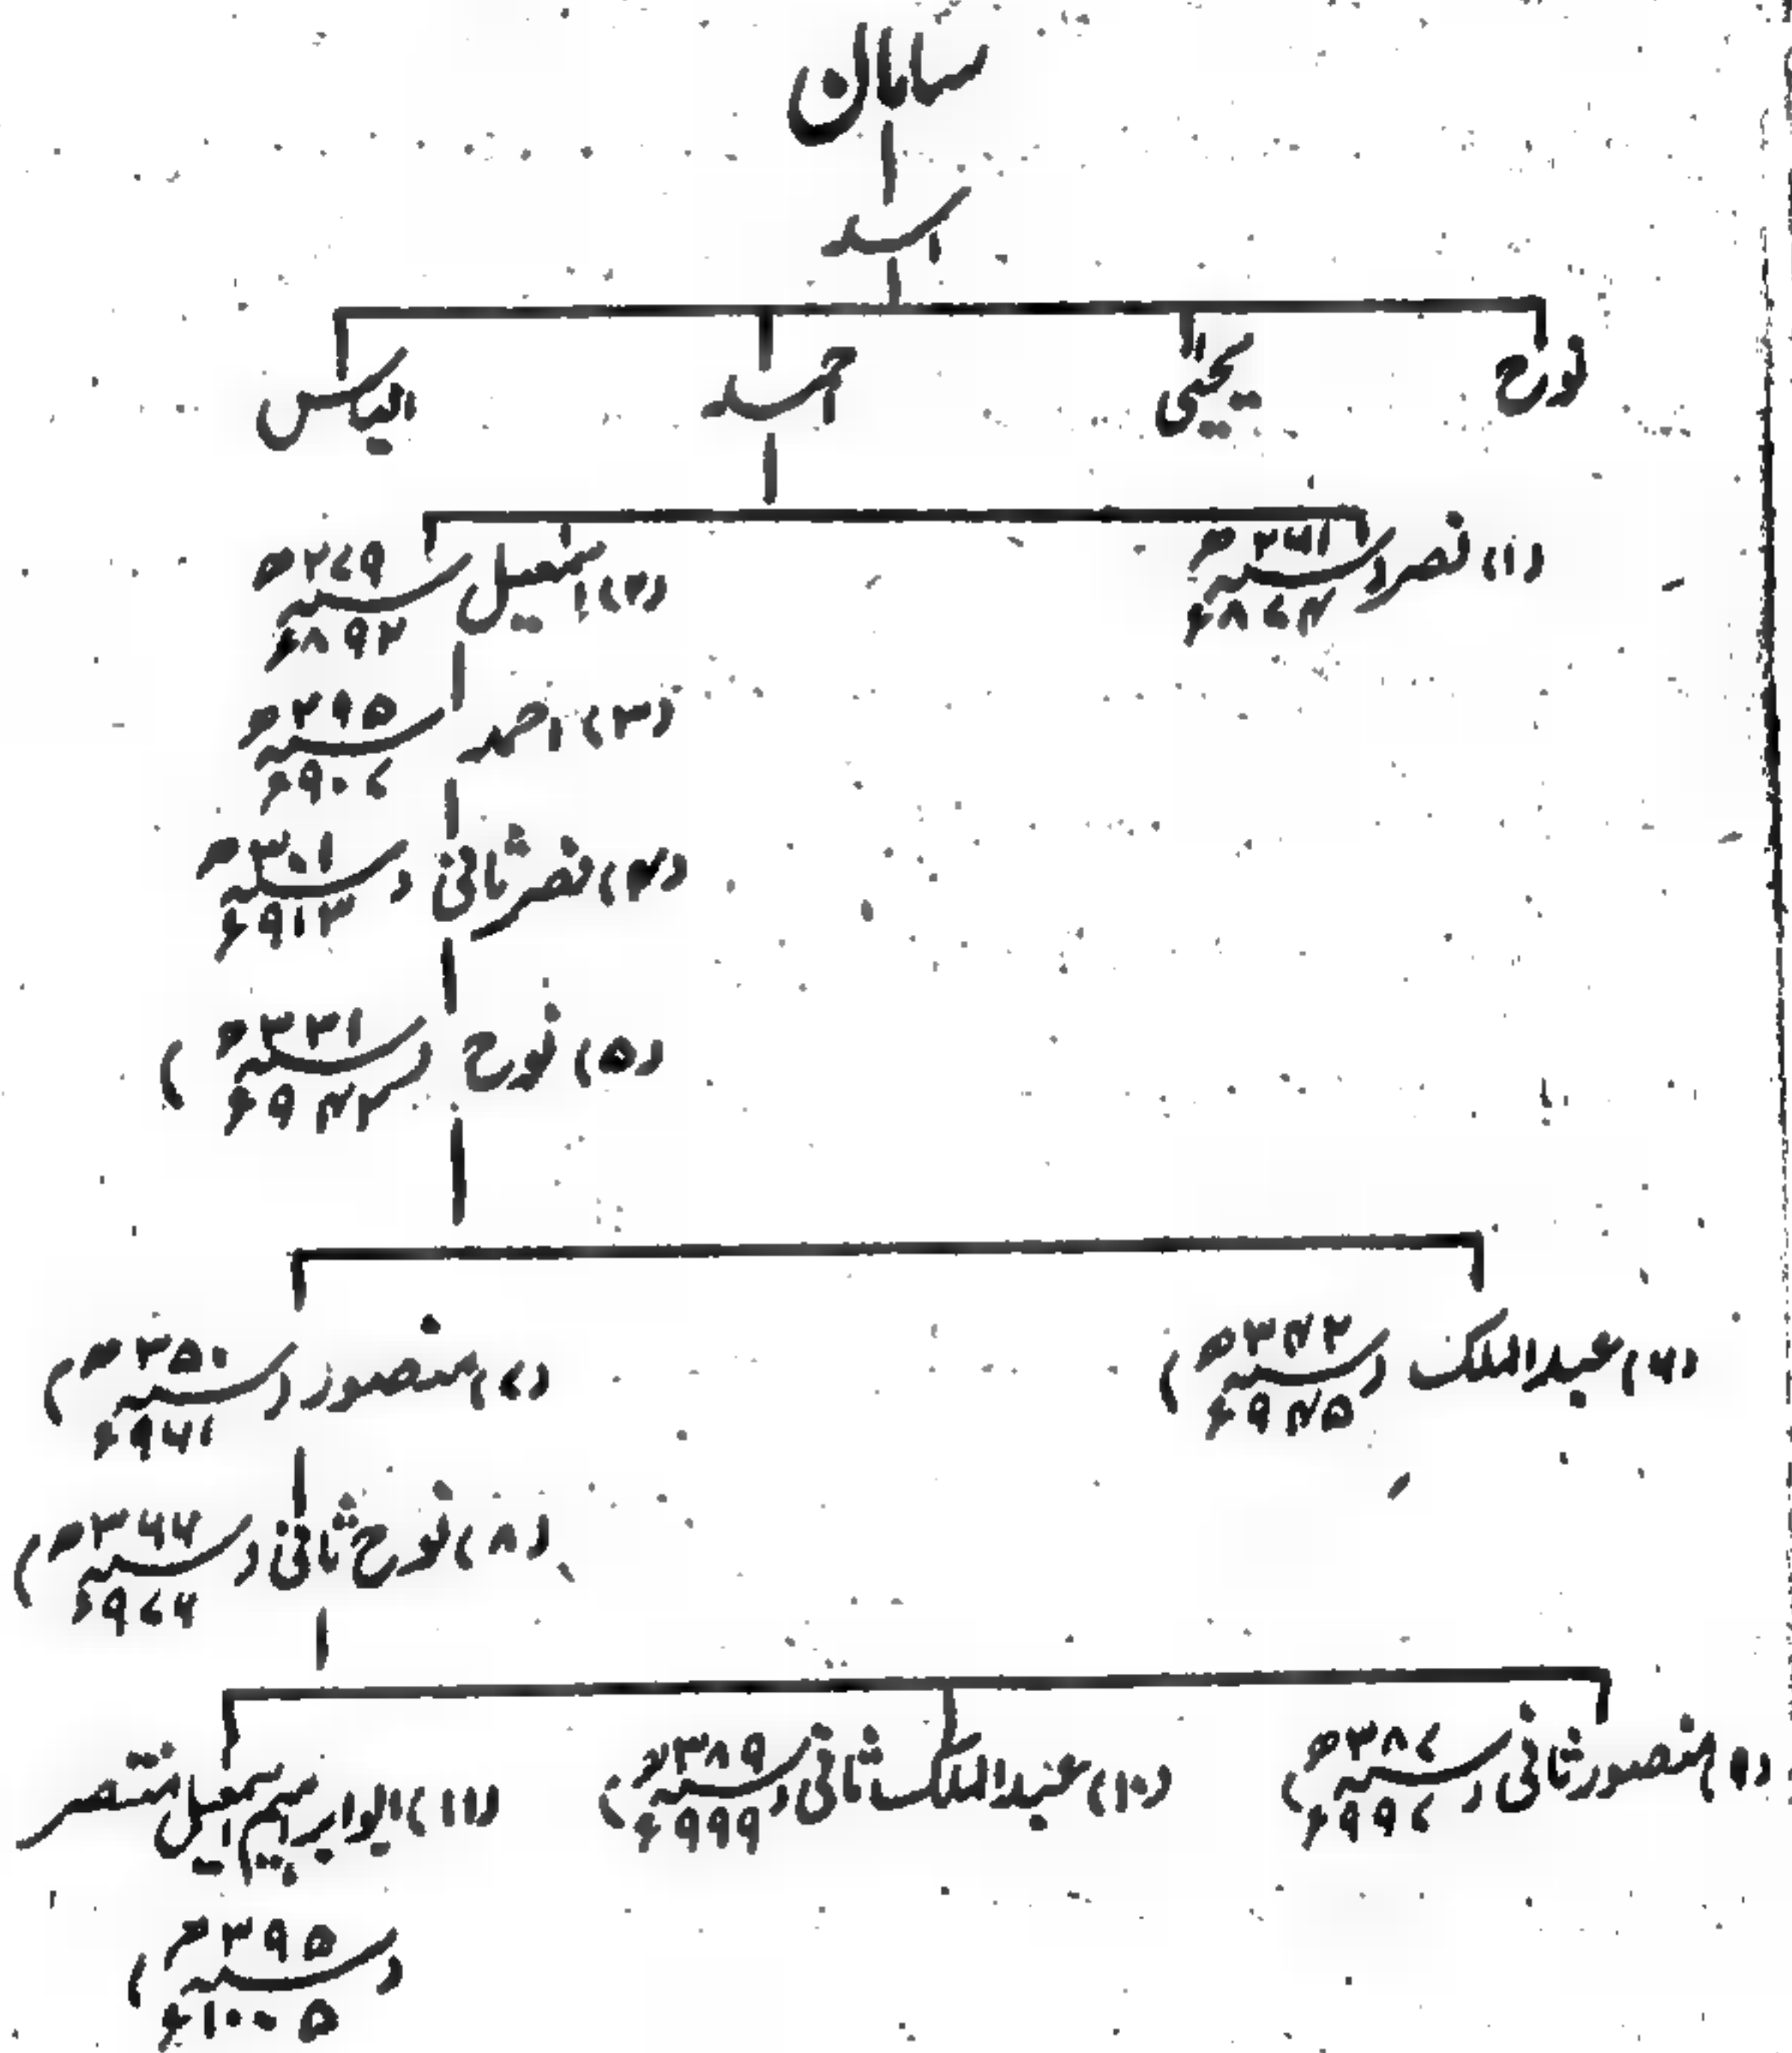 سامان
اسد
نوح یحییٰ احمد الیاس
(۱) نصر (سنہ ۲۶۱ھ
۸۷۴ء
(۲) اسمٰعیل سنہ ۲۷۹ھ
۸۹۲ء
(۳) احمد سنہ ۲۹۵ھ
۹۰۷ء
(۴) نصر ثانی (سنہ ۳۰۱ھ
۹۱۳ء
(۵) نوح (سنہ ۳۳۱ھ
۹۴۲ء)
(۶) عبدالملک (سنہ ۳۴۳ھ
۹۴۵ء)
(۷) منصور (سنہ ۳۵۰ھ
۹۶۱ء)
(۸) نوح ثانی (سنہ ۳۶۶ھ
۹۷۶ء)
(۹) منصور ثانی (سنہ ۳۸۷ھ
۹۹۷ء)
(۱۰) عبدالملک ثانی (سنہ ۳۸۹ھ
۹۹۹ء)
(۱۱) ابو ابراہیم اسمٰعیل منتصر
(سنہ ۳۹۵ھ
۱۰۰۵ء)